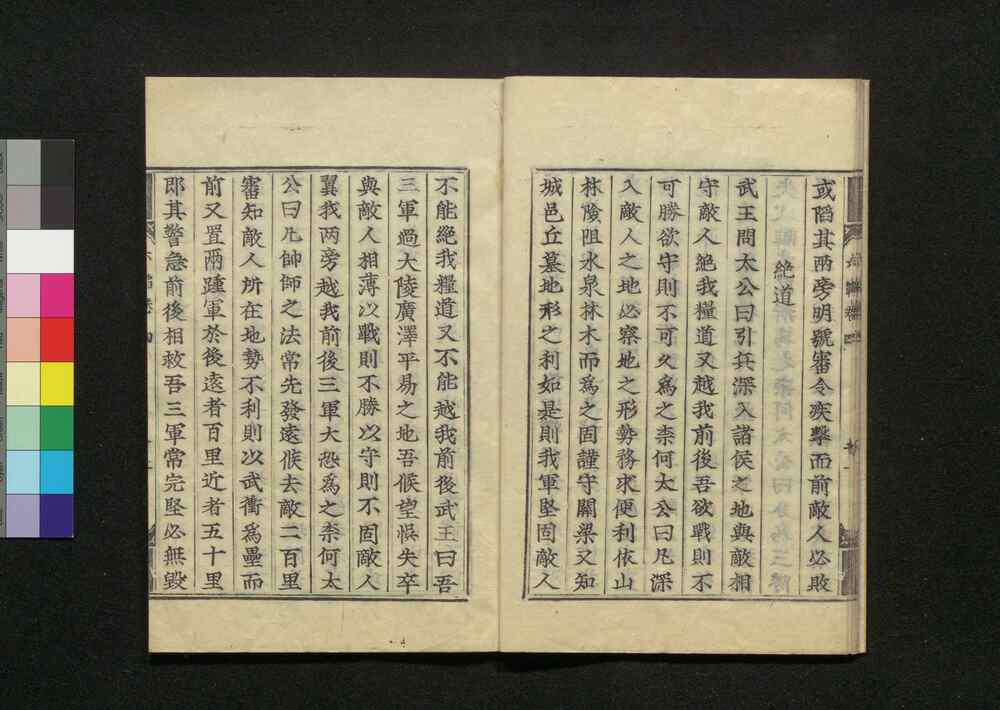 或陷其兩旁明號審令疾擊而前敵人必敗
絶道
武王問太公曰引兵深入諸侯之地與敵相
守敵人絶我糧道又越我前後吾欲戰則不
可勝欲守則不可久爲之柰何太公曰凡深
入敵人之地必察地之形勢務求便利依山
林險阻水泉林木而爲之固謹守關梁又知
城邑丘墓地形之利如是則我軍堅固敵人
不能絶我糧道又不能越我前後武王曰吾
三軍過大陵廣澤平易之地吾候望悞失卒
與敵人相薄以戰則不勝以守則不固敵人
翼我两旁越我前後三軍大恐爲之柰何太
公曰凡帥師之法常先發遠候去敵二百里
審知敵人所在地勢不利則以武衝爲壘而
前又置兩踵軍於後遠者百里近者五十里
即其警急前後相救吾三軍常完堅必無毀